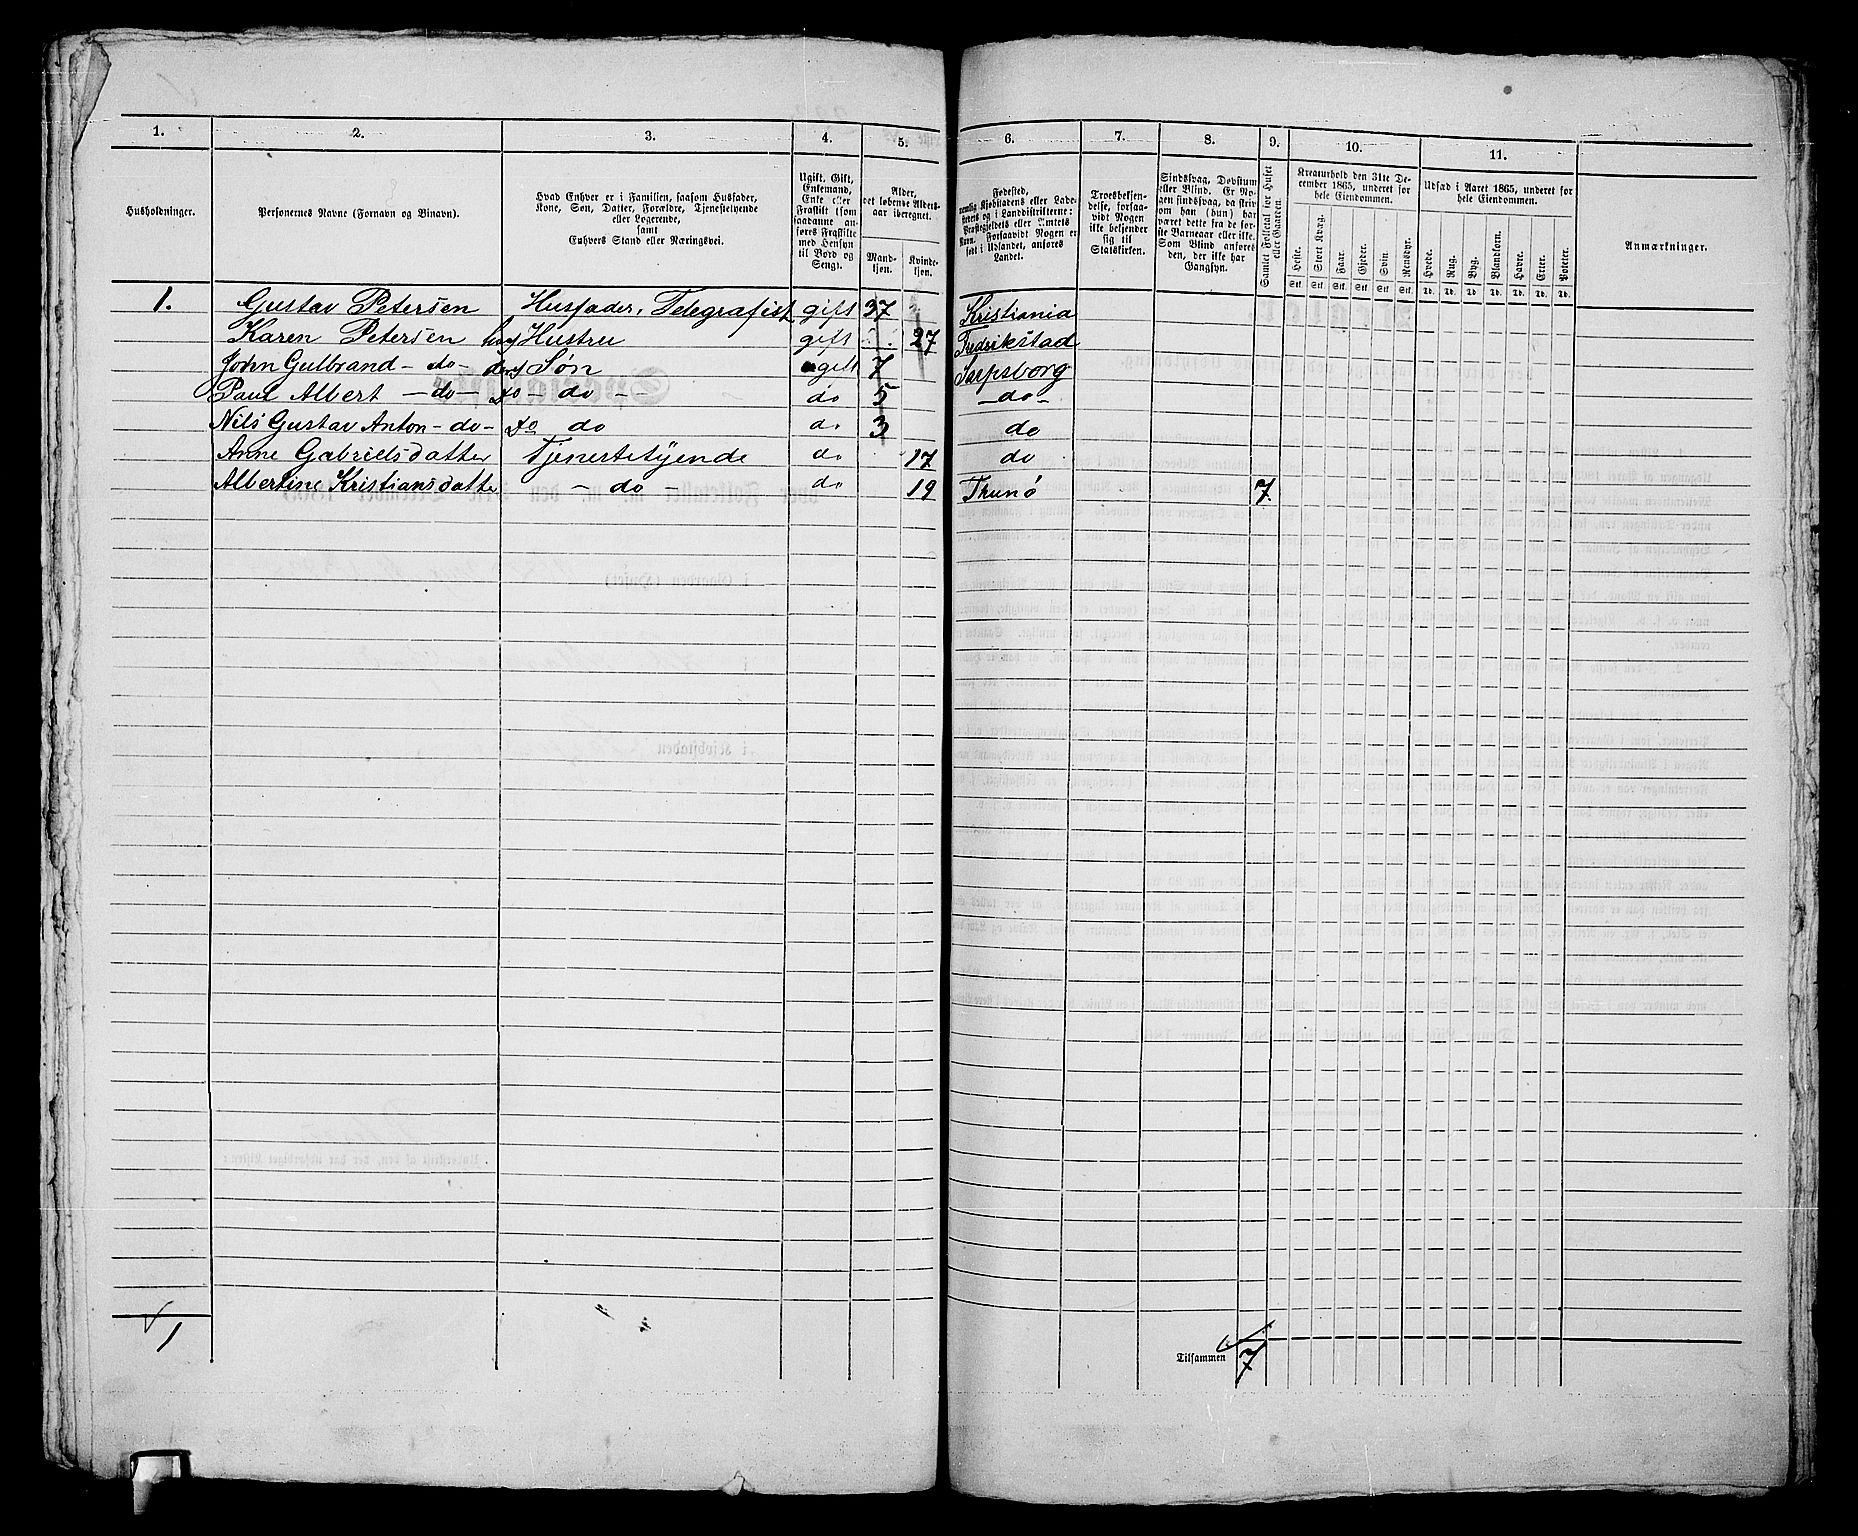 1. 2. 3. 4. 5. 6. 7. 8. 9. 10. 11.
Husholdninger.
Personernes Navne (Fornavn og Binavn).
Hvad Enhver er i Familien, saasom Husfader,
Kone, Søn, Datter, Forældre, Tjenestetyende
eller Logerende,
samt
Enhvers Stand eller Næringsvei.
Ugift, Gift,
Enkemand,
Enke eller
Fraskilt (som
saadanne an-
føres Fraskilte
med Hensyn
til Bord og
Seng).
Alder,
det løbende Alders-
aar iberegnet.
Mand-
kjøn.
Kvinde-
kjøn.
Fødested,
nemlig Kjøbstadens eller Lade-
stedets og i Landdistrikterne:
Præstegjeldets eller Amtets
Navn. Forsaavidt Nogen er
født i Udlandet, anføres
Landet.
Troesbekjen-
delse, forsaa-
vidt Nogen
ikke bekjender
sig til
Statskirken.
Sindssvag, Døvstum
eller Blind. Er No-
gen sindssvag, da skriv
om han (hun) har
været dette fra de før-
ste Barneaar eller ikke.
Som Blind anføres
den, der ikke har
Gangsyn.
Samlet Folketal for Huset
eller Gaarden.
Kreaturhold den 31te De-
cember 1865, underet for
hele Eiendommen.
Heste. Stort Kvæg. Faar. Gjeder. Svin. Rensdyr.
Stk. Stk. Stk. Stk. Stk. Stk.
Udsæd i Aaret 1865, underet for
hele Eiendommen.
Hvede. Rug. Byg. Blandkorn. Havre. Erter. Poteter.
Td. Td. Td. Td. Td. Td. Td.
Anmærkninger.
1. Gustav Petersen Husfader, Telegrafist gift 37 Kristiania
Karen Petersen Hustru gift 27 Fredrikstad
John Gulbrand - do - Søn ugift 7 Sarpsborg
Paul Albert - do - do - do - - do 5 - do -
Nils Gustav Anton - do - do do do 3 do
Anne Gabrielsdatter Tjenestetyende do 17 do
Albertine Kristiansdatter - do - do 19 Thunø 7.
1
Tilsammen 7